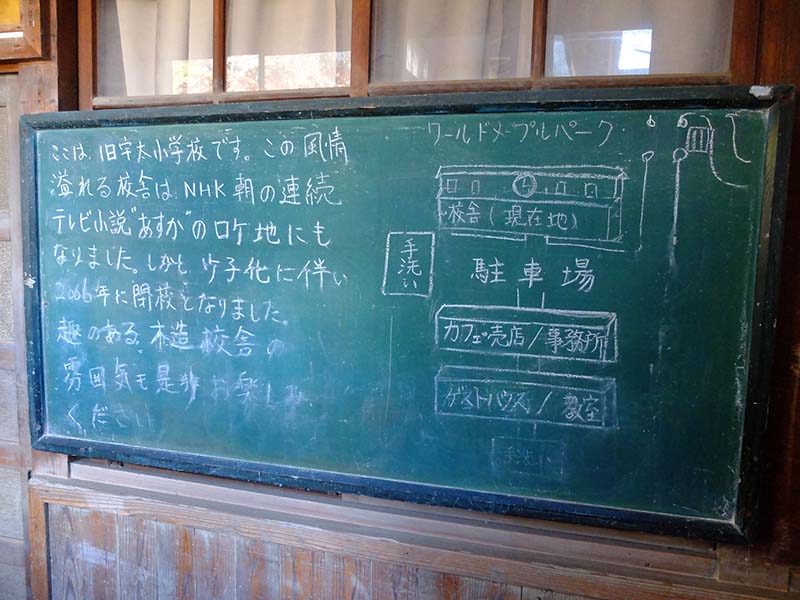 ここは、旧宇太小学校です。この風情
溢れる校舎は、NHK朝の連続
テレビ小説"あすか"のロケ地にも
なりました。しかし少子化に伴い
2006年に閉校となりました。
趣のある、木造校舎の
雰囲気も是非お楽しみ
ください
ワールドメープルパーク
校舎(現在地)
手洗い
駐車場
カフェ売店/事務所
ゲストハウス/教室
手洗い